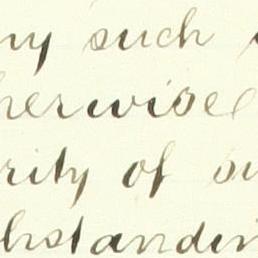 ny such
herwise
rity of su
thstandin